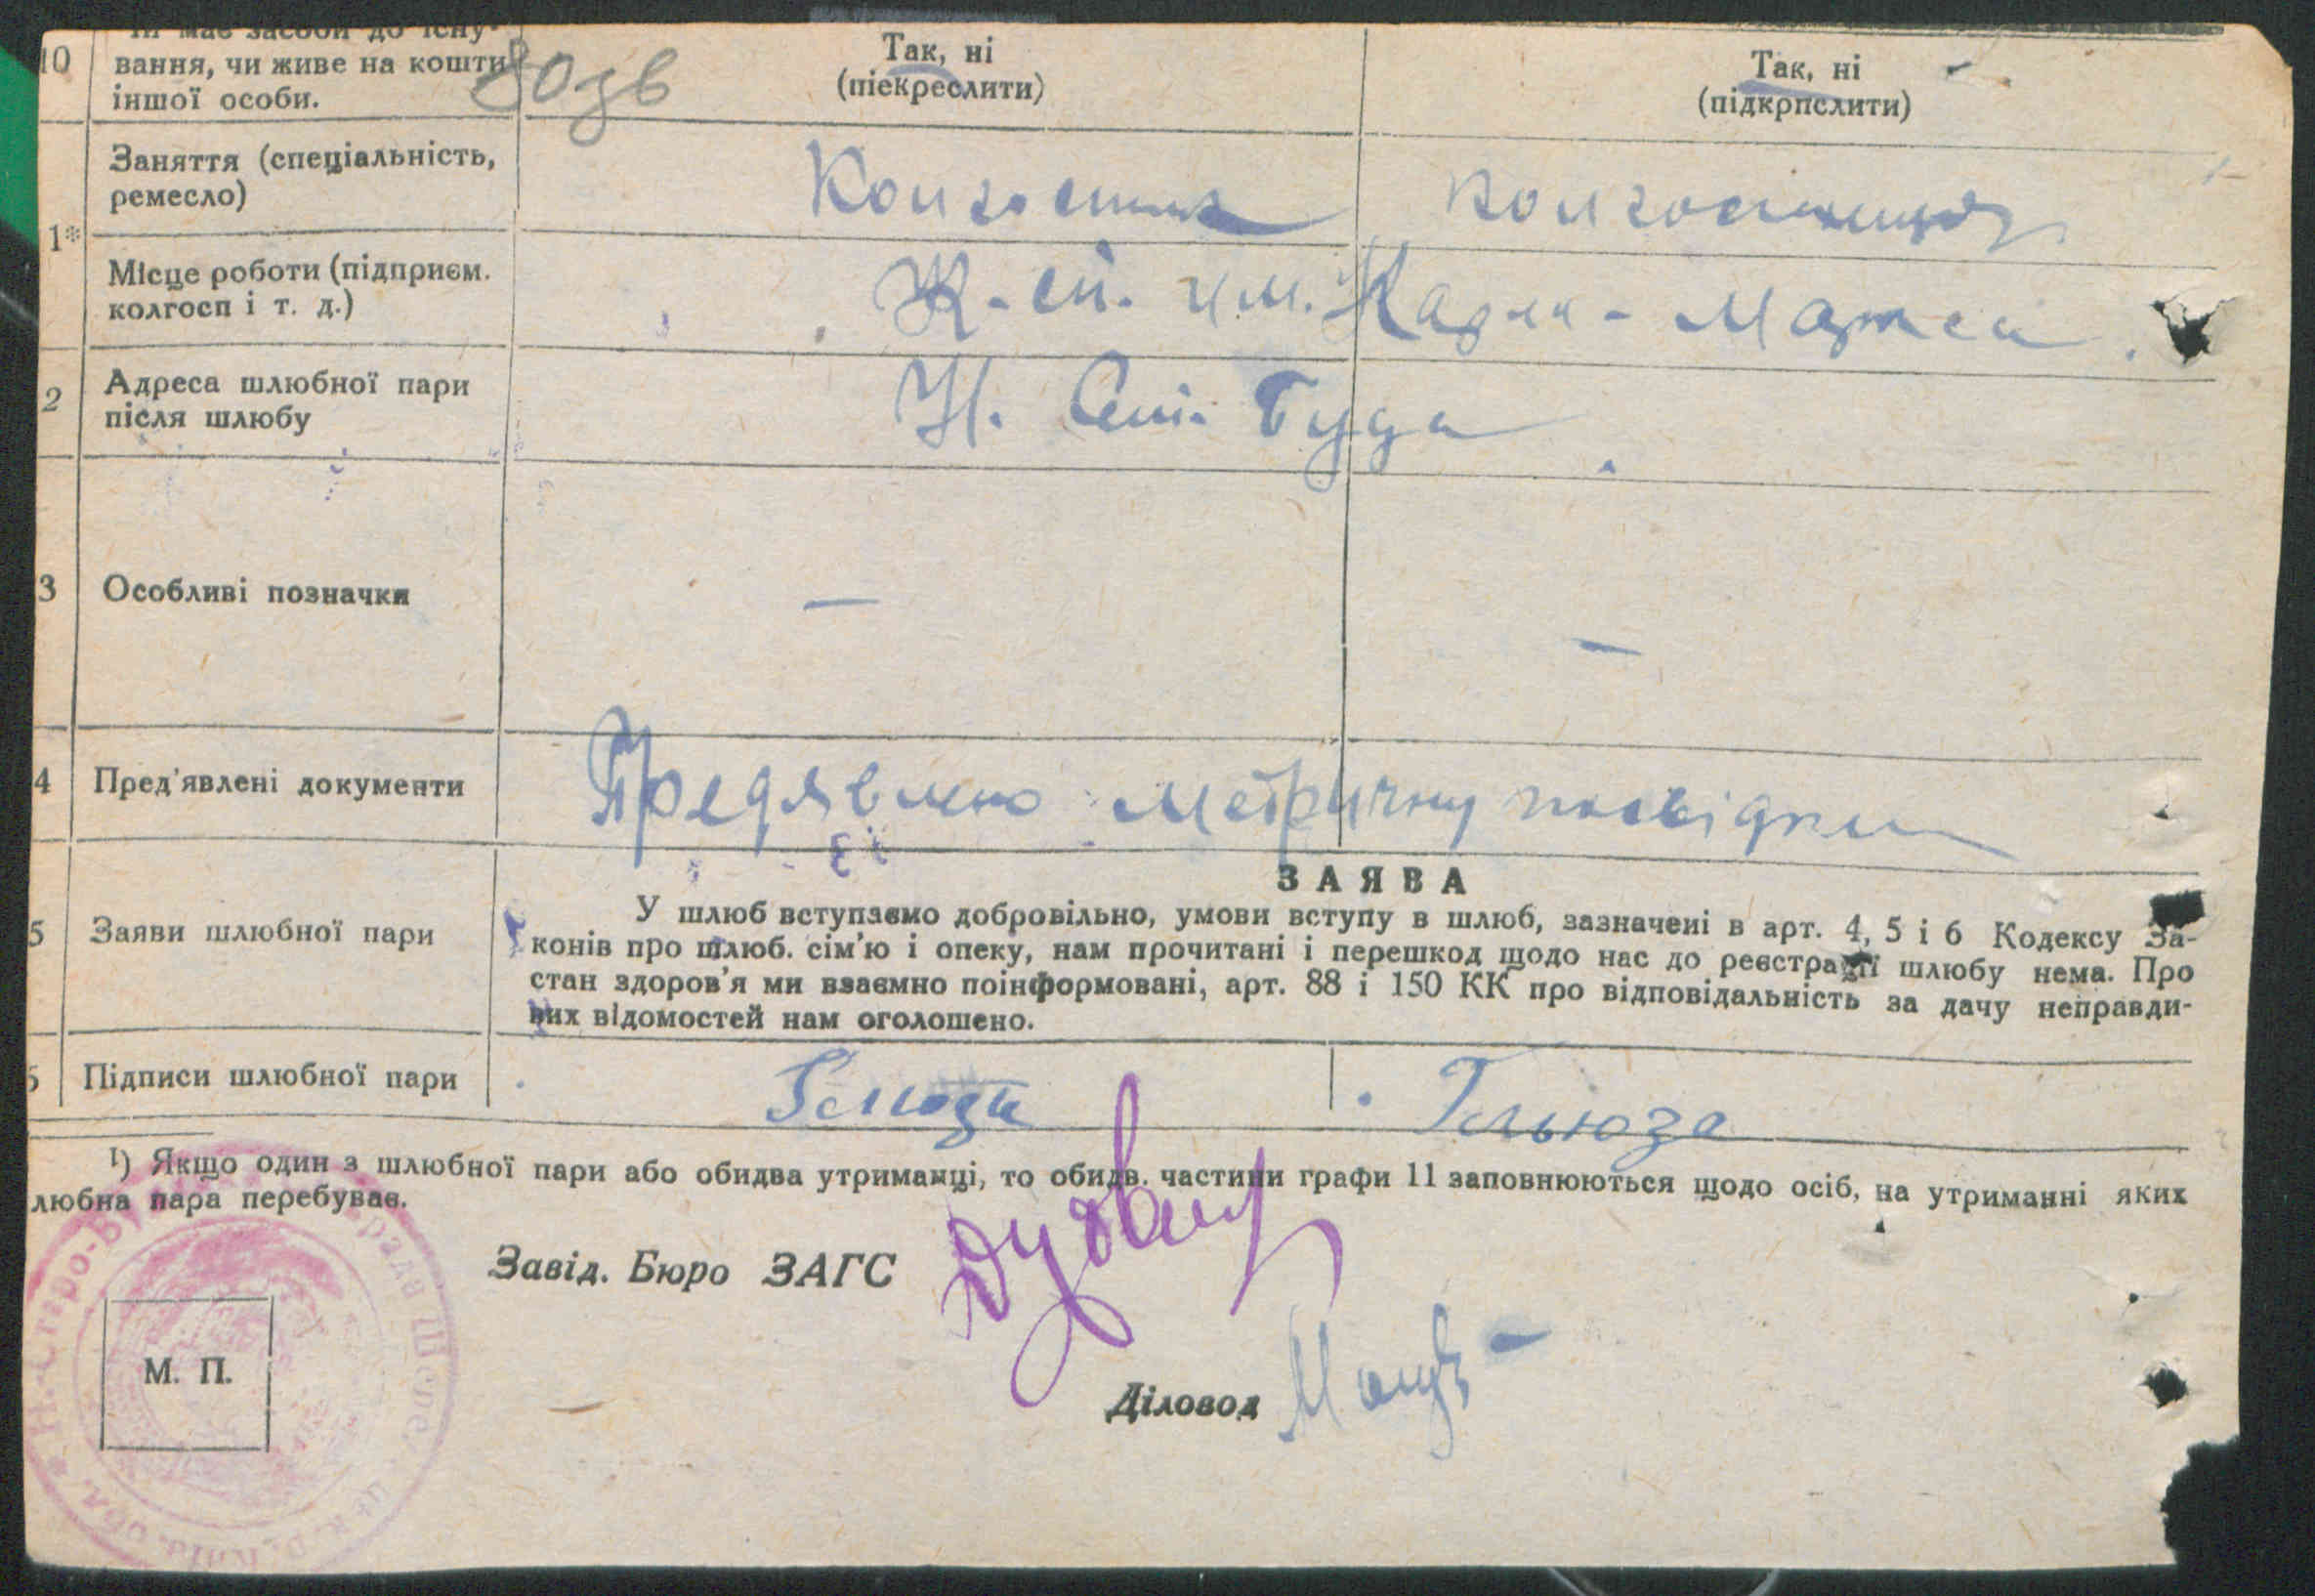 10 Чи має засоби до існу-
вання, чи живе на кошти
іншої особи.
80 зв
Так, ні
(піекреслити)
Так, ні
(підкрпслити)
1*
Заняття (спеціальність,
ремесло)
Колгоспник
колгоспниця
Місце роботи (підприєм.
колгосп і т. д.)
К-сп. им. Карла-Маркса.
2 Адреса шлюбної пари
після шлюбу
Н. Спі. Буда
3 Особливі позначки
— —
4 Пред'явлені документи
Предявлено метричну посвідки
5 Заяви шлюбної пари
ЗАЯВА
У шлюб вступаємо добровільно, умови вступу в шлюб, зазначені в арт. 4, 5 і 6 Кодексу За-
конів про шлюб. сім'ю і опеку, нам прочитані і перешкод щодо нас до реєстрації шлюбу нема. Про
стан здоров'я ми взаємно поінформовані, арт. 88 і 150 КК про відповідальність за дачу неправди-
вих відомостей нам оголошено.
6 Підписи шлюбної пари
Гельюза
¹) Якщо один з шлюбної пари або обидва утриманці, то обидв. частини графи 11 заповнюються щодо осіб, на утриманні яких
любна пара перебуває.
Завід. Бюро ЗАГС
М. П.
Діловод